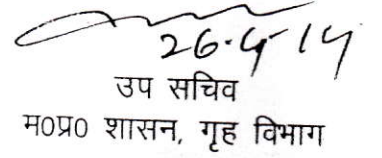 26.4.14
उप सचिव
म०प्र० शासन, गृह विभाग